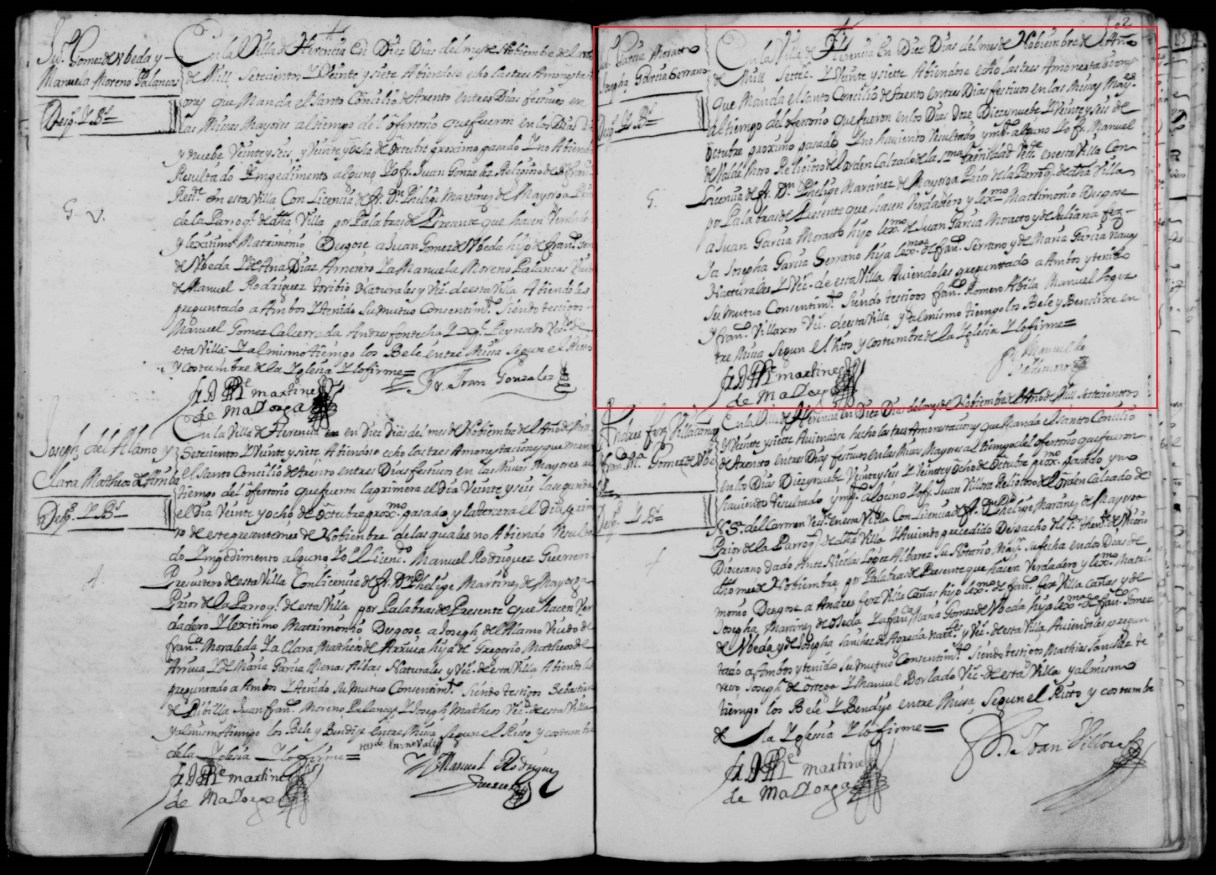 Juº Gomez de Vbeda y
Manuela Moreno Palancas
Desp. Y Bn
G. V.
En la Villa de Herencia En Diez Dias del mes de Nobiembre de
de Mill Setecientos Y Veinte y siete Abiendose echo las tres Amonestaz
ones que Manda el Santo Concilio de Trento entres Dias festiuos en
las Misas Mayores al tiempo del ofertorio que fueron en los Dias
y nuebe Veinte y seis y Veinte y ocho de octubre proximo pasado Y no Abiendo
Resultado Ympedimento alguno Yo fr. Juan Gonzalez Religioso de
en esta Villa Con Licencia de fr. Dn Phelipe Martinez de Mayorga
de la Parroql. de dha Villa por Palabras de Presente que hacen Verdadero
y lexitimo Matrimonio Despose a Juan Gomez de Vbeda hijo de franco
de Vbeda Y de Ana Diaz Armero Y a Manuela Moreno Palancas
de Manuel Rodriguez toribio Naturales y Vos. de esta Villa Abiendoles
preguntado a Ambos Y tenido Su mutuo Consentimto. Siendo testigos
Manuel Gomez Calcerrada Andres fontecha Y
esta Villa Y al mismo tiempo los Bele entre Missa segun el Rito
y costumbre de la Yglesia Y lo firme=
fr. D Phe martinez
de Maiorga
Fr. Juan Gonzalez
Joseph del Alamo y
Clara Matheos
Desp. Y Bn
En la Villa de Herencia en Diez Dias del mes de Nobiembre de
Setecientos Y Veinte y siete Abiendose echo las tres Amonestaciones que manda
el Santo Concilio de Trento entres Dias festiuos en las Misas Mayores al
tiempo del ofertorio que fueron la primera el Dia Veinte y seis la segunda
el Dia Veinte y ocho de octubre proxmo. pasado y la tercera el Dia
de este presente mes de Nobiembre de las quales no Abiendo
do Ympedimento alguno Yo el Licendo Manuel Rodriguez Guerrero
Presuitero de esta Villa Con licencia de fr. Dn Phelipe Martinez de Mayorga
Prior de la Parroql. de esta Villa por Palabras de Presente que hacen Ver
dadero Y lexitimo Matrimonio Despose a Joseph del Alamo Viudo de
franca Moraleda Y a Clara Matheos de Arruia hija de Gregorio Matheos de
Arruia Y de Maria Garcia Naturales y Vos. de esta Villa Abiendoles
preguntado a Ambos Y tenido Su mutuo Consentimto. Siendo testigos Sebastian
de Juan franco Moreno Palancas Y Joseph Matheos Vos. de esta Villa
y al mismo tiempo los Bele y Bendixe entre Missa segun el Rito y costumbre
de la Yglesia Y lo firme=
fr. D Phe martinez
de Maiorga
Manuel Rodriguez
Guerrero
Garcia Morato
Josepha Garcia Serrano
Desp. Y Bn
G.
En la Villa de Herencia En Diez Dias del mes de Nobiembre de Año
de Mill Settec. Y Veinte y siete Abiendose echo las tres Amonestaciones
que Manda el Santo Concilio de Trento entres Dias festiuos en las Misas Mayes.
al tiempo del ofertorio que fueron en los Dias Doze Diezynuebe Y Veinte y seis de
octubre proximo pasado Y no Auiendo Resultado ympto. alguno Yo fr. Manuel
de Valdemoro Religioso del orden Calzado de la sma. trinidad Resite. en esta Villa Con
Licencia de fr. Dn. Phelipe Martinez de Mayorga Prior de la Parroql. de dha Villa
por Palabras de Presente que hacen Verdadero y lexmo. Matrimonio Despose
a Juan Garcia Morato hijo lexmo. de Juan Garcia Morato y de Juliana frz
Ya Josepha Garcia Serrano hija lexma. de fran. Serrano y de Maria Garcia
Natturales Y Vos. de esta Villa Auiendoles preguntado a Ambos y tenido
su mutuo Consentimto. Siendo testigos fran. Romen Abila Manuel
Y fran. Villaxos Vos. de esta Villa, y al mismo tiempo los Bele y Bendixe en
tre Missa segun el Rito y costumbre de la Yglesia Y lo firme=
fr. D Phe martinez
de Maiorga
fr. Manuel de
Valdemoro
Andres frz Villacañas
Gomez de Vbe
Desp. Y Bn
En la Villa de Herencia en Diez Dias del mes de Nobiembre de Año de Mill Settecientos
Y Veinte y siete Auiendose hecho las tres Amonestaciones que Manda el Santo Concilio
de Trento entres Dias festiuos en las Misas Mayores al tiempo del ofertorio que fueron
en los Dias Diezynuebe Veinte y seis Y Veinte y ocho de octubre proxmo. pasado y no
Hauiendo Resultado ympto. alguno Yo fr. Juan Villora Religioso del orden Calzado de
N.S. del Carmen Resite. en esta Villa Con Licencia de fr. Dn Phelipe Martinez de Mayorga
Prior de la Parroql. de dha Villa Y Auiendo precedido Despacho del
Diocesano dado Ante Nicolas Lopez Albares su Notario Mayr. su fecha en dos Dias de
dho mes de Nobiembre por Palabras de Presente que hacen Verdadero y lexmo. Matri
monio Despose a Andres frz Villa Cañas hijo lexmo. de fran. frz Villa Cañas y de
Josepha Martinez de Ya fran. Maria Gomez de Vbeda hija lexma. de fran. Gomez
de Vbeda y de Josepha Sanchez de Aparda natts. y Vos. de esta Villa Auiendoles pregun
tado a Ambos y tenido Su mutuo Consentimto. Siendo testigos Mathias Sanchez de
Joseph de ortega Y Manuel Borlado Vos. de esta Villa y al mismo
tiempo los Bele Y Bendixe entre Missa Segun el Ritto y costumbre
de la Yglesia Y lo firme=
fr. D Phe martinez
de Maiorga
Fr. Juan Villora